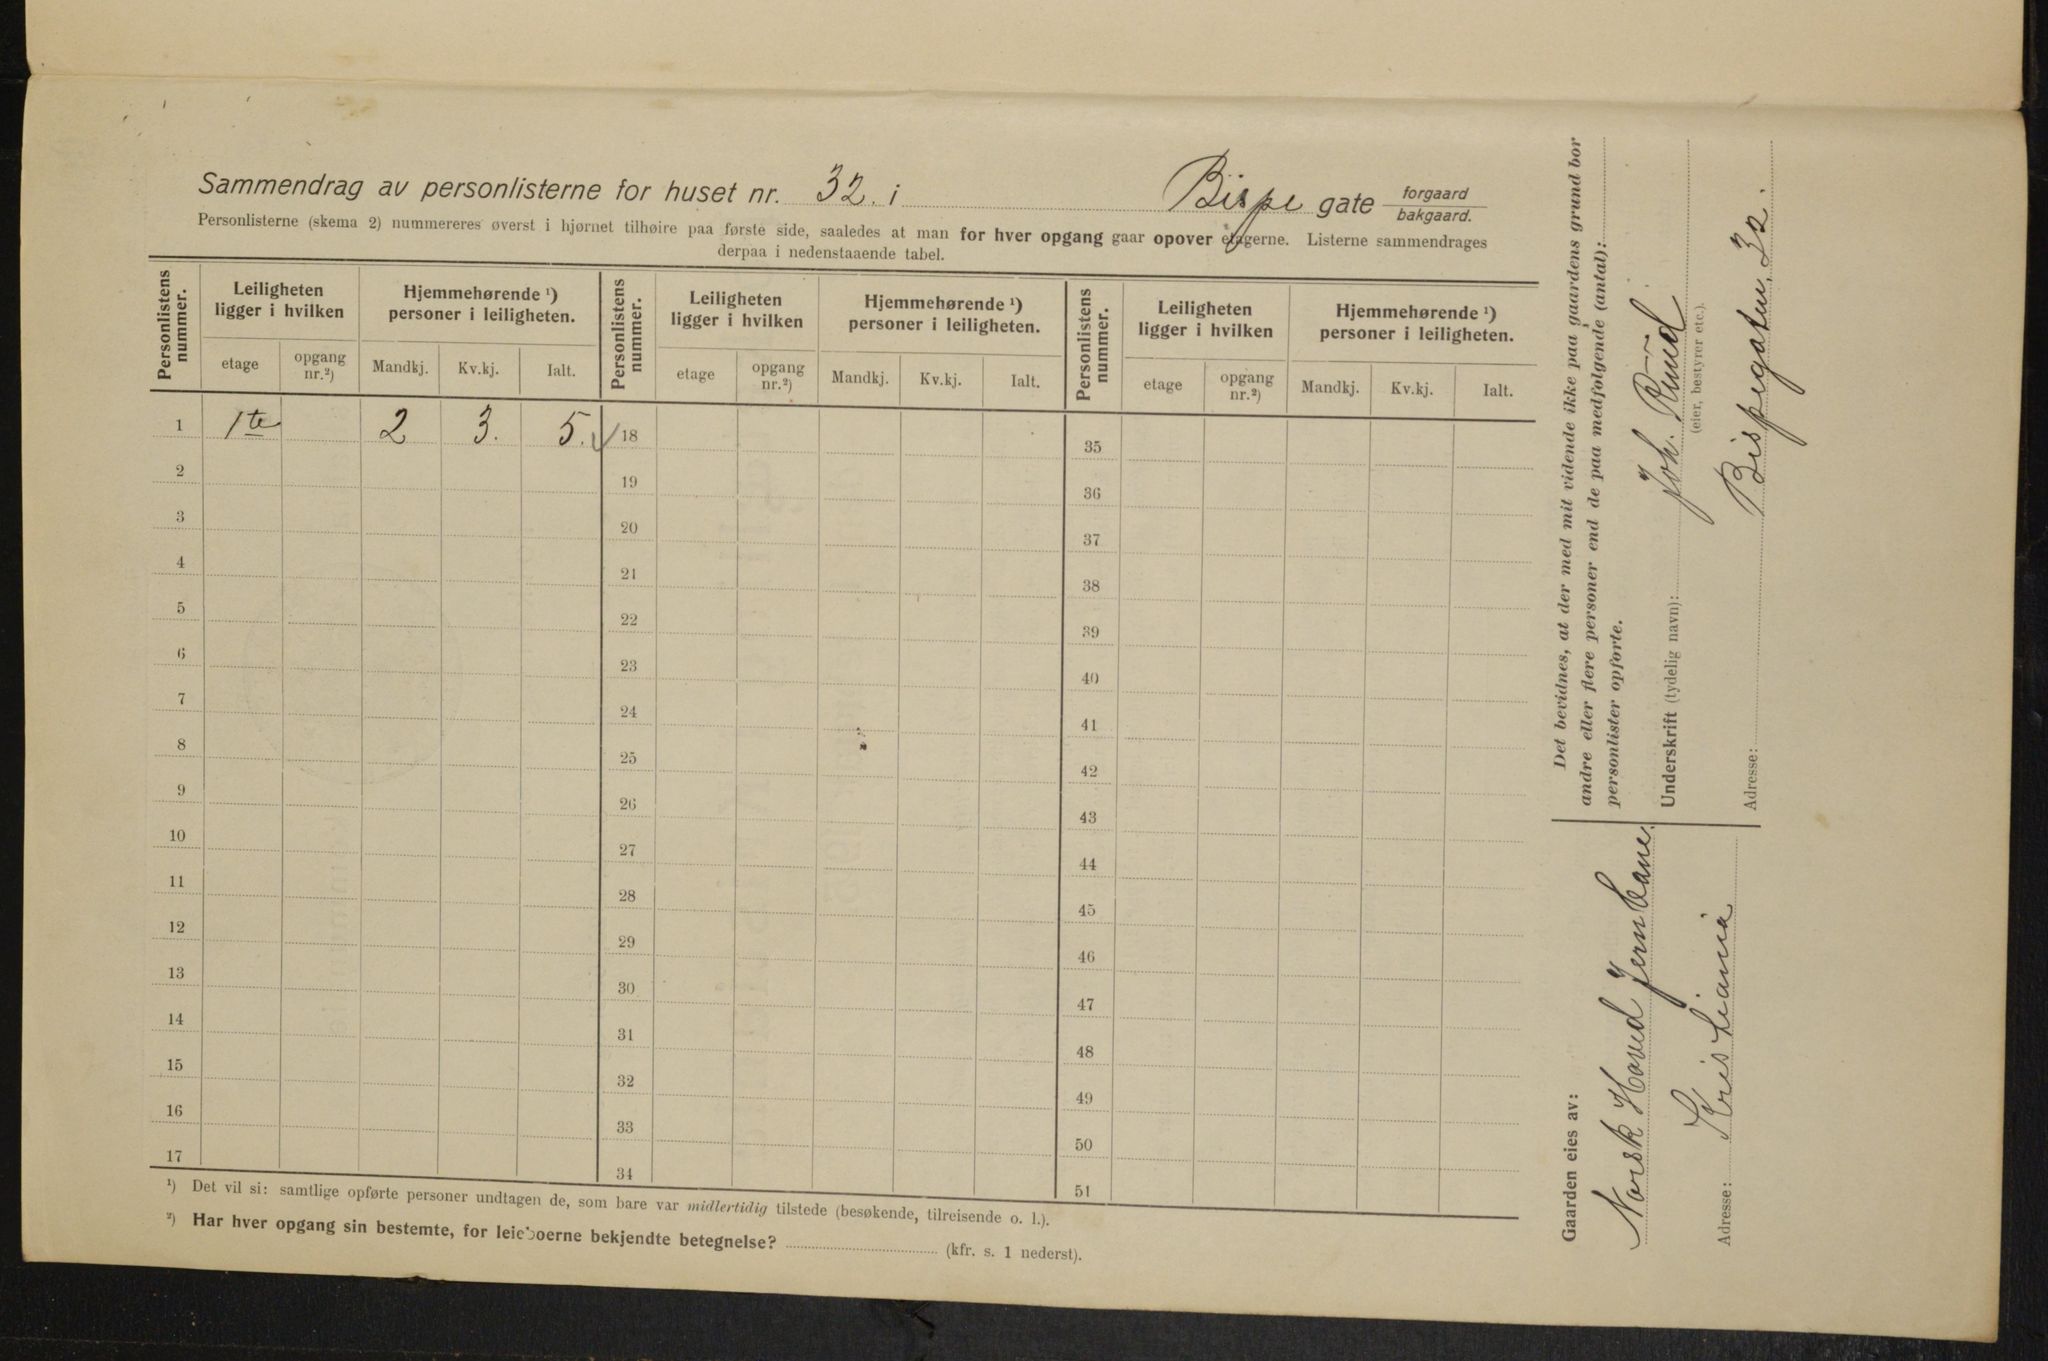 Sammendrag av personlisterne for huset nr. 32. i Bispe gate forgaard bakgaard.
Personlisterne (skema 2) nummereres øverst i hjørnet tilhøire paa første side, saaledes at man for hver opgang gaar opover etagerne. Listerne sammendrages
derpaa i nedenstaaende tabel.
Personlistens nummer. Leiligheten ligger i hvilken Hjemmehørende ¹) personer i leiligheten. Personlistens nummer. Leiligheten ligger i hvilken Hjemmehørende ¹) personer i leiligheten. Personlistens nummer. Leiligheten ligger i hvilken Hjemmehørende ¹) personer i leiligheten.
etage opgang nr.²) Mandkj. Kv.kj. Ialt. etage opgang nr.²) Mandkj. Kv.kj. Ialt. etage opgang nr.²) Mandkj. Kv.kj. Ialt.
1 1te 2 3. 5. 18 35
2 19 36
3 20 37
4 21 38
5 22 39
6 23 40
7 24 41
8 25 42
9 26 43
10 27 44
11 28 45
12 29 46
13 30 47
14 31 48
15 32 49
16 33 50
17 34 51
¹) Det vil si: samtlige opførte personer undtagen de, som bare var midlertidig tilstede (besøkende, tilreisende o. l.).
²) Har hver opgang sin bestemte, for leieboerne bekjendte betegnelse? (kfr. s. 1 nederst).
Det bevidnes, at der med mit vidende ikke paa gaardens grund bor
andre eller flere personer end de paa medfolgende (antal):
personlister opforte.
Underskrift (tydelig navn): Joh. Ruud
(eier, bestyrer etc.).
Adresse: Bispegaten 32.
Gaarden eies av:
Norsk Hoved Jernbane.
Adresse: Kristiania